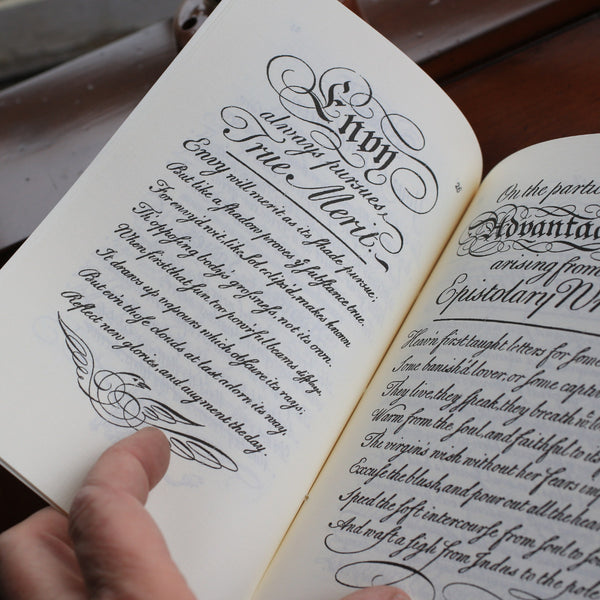 26
Envy
always pursues,
True Merit.
Envy will merit as its ſhade, pursue;
But like a ſhadow proves yͤ ſubſtance true.
For envy'd wit, like Sol eclips'd, makes known
Th' oppoſing body's groſsneſs, not its own.
When first that ſun, too pow'rful beams diſplays
It draws up vapours which obſcure its rays;
But ev'n thoſe clouds at last adorn its way,
Reflect new glories, and augment the day
On the
arising from
Epistolary
Heav'n first taught letters for ſome
Some baniſh'd lover, or ſome
They love, they ſpeak, they breath
Warm from the ſoul, and faithful to
The virgin's wiſh without her fears
Excuſe the bluſh, and pour out all the
Speed the ſoft intercourſe from ſoul to
And waft a ſigh from Indus to the